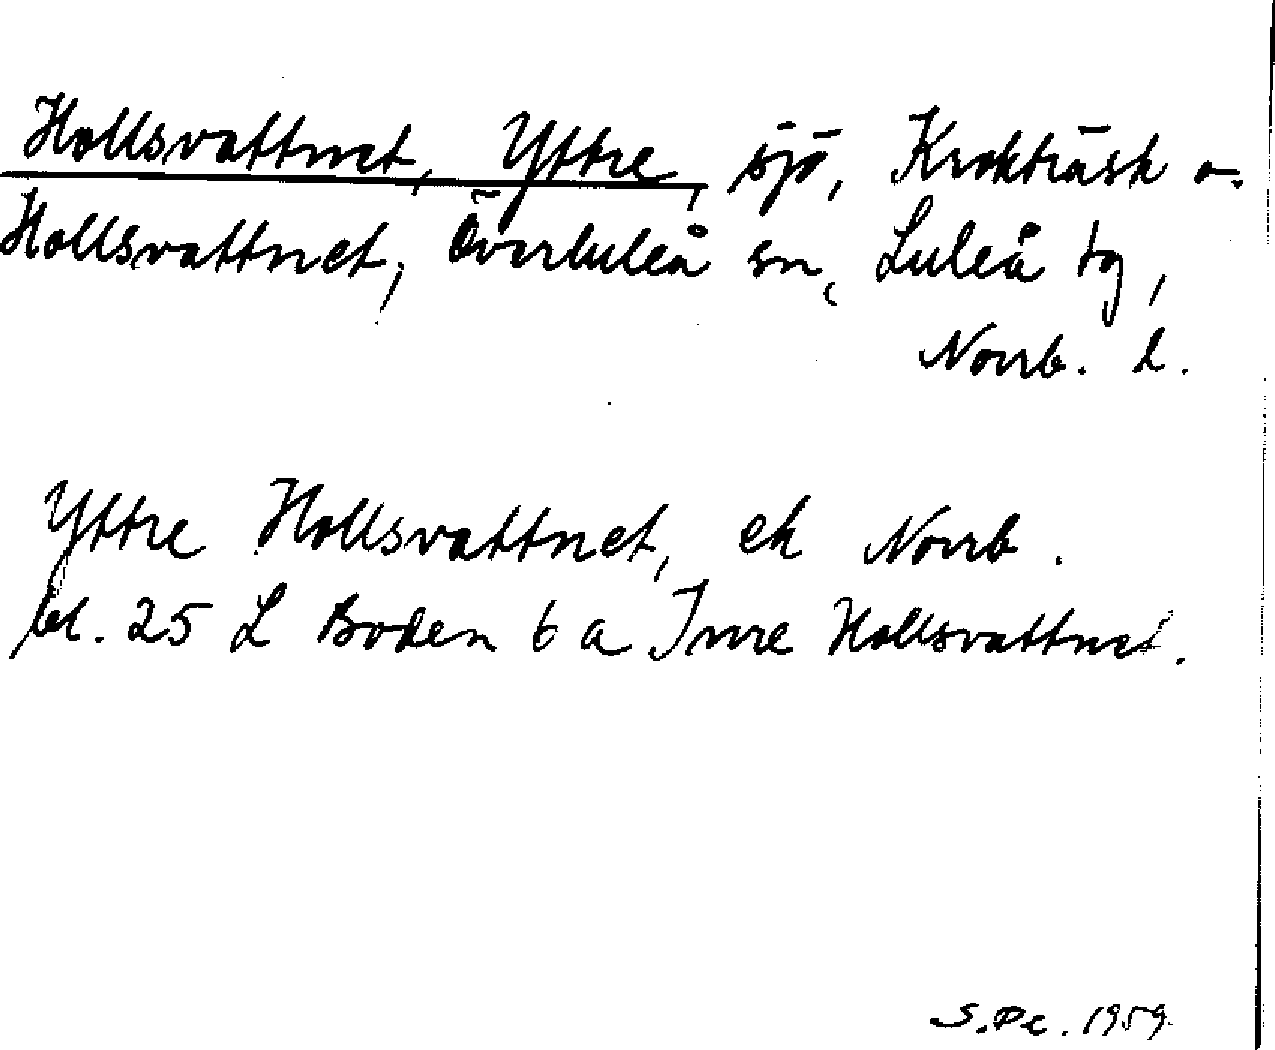 Hollsvattnet, Yttre, sjö, Krokträsk o.
Hollsvattnet, Överluleå sn, Luleå tg,
Norrb. l.
Yttre Hollsvattnet, ek Norrb.
bl. 25 L Boden 6 a Inre Hollsvattnet.
S.Pe. 1959